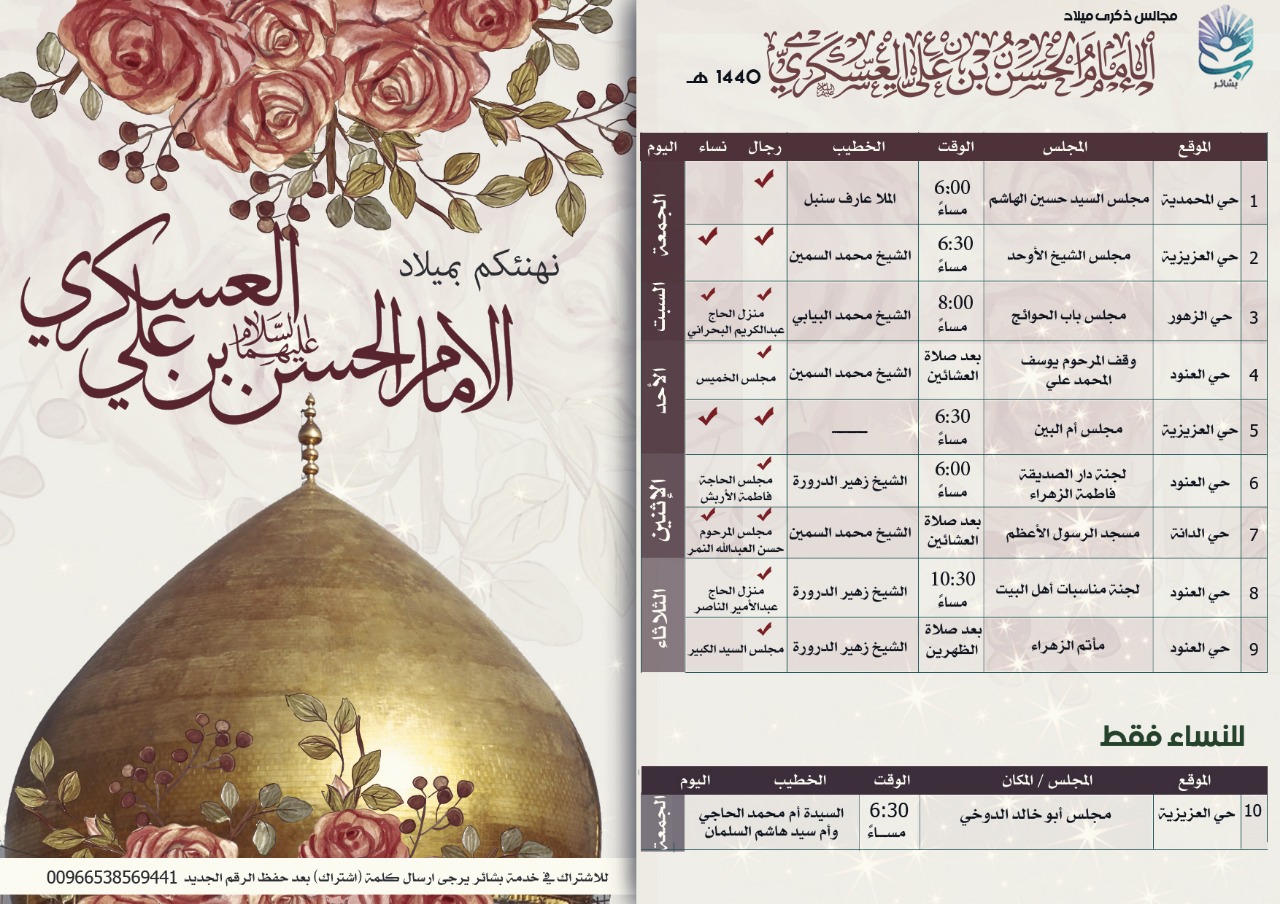 مجالس ذكرى ميلاد
الإمام الحسن بن علي العسكري
1440 هـ
بشائر
الموقع المجلس الوقت الخطيب رجال نساء اليوم
الجمعة
1 حي المحمدية مجلس السيد حسين الهاشم 6:00 مساءً الملا عارف سنبل
2 حي العزيزية مجلس الشيخ الأوحد 6:30 مساءً الشيخ محمد السمين
السبت
3 حي الزهور مجلس باب الحوائج 8:00 مساءً الشيخ محمد البيابي منزل الحاج عبدالكريم البحراني
الأحد
4 حي العنود وقف المرحوم يوسف المحمد علي بعد صلاة العشائين الشيخ محمد السمين مجلس الخميس
5 حي العزيزية مجلس أم البين 6:30 مساءً ـــــــ
الإثنين
6 حي العنود لجنة دار الصديقة فاطمة الزهراء 6:00 مساءً الشيخ زهير الدرورة مجلس الحاجة فاطمة الأربش
7 حي الدانة مسجد الرسول الأعظم بعد صلاة العشائين الشيخ محمد السمين مجلس المرحوم حسن العبدالله النمر
الثلاثاء
8 حي العنود لجنة مناسبات أهل البيت 10:30 مساءً الشيخ زهير الدرورة منزل الحاج عبدالأمير الناصر
9 حي العنود مأتم الزهراء بعد صلاة الظهرين الشيخ زهير الدرورة مجلس السيد الكبير
للنساء فقط
الموقع المجلس / المكان الوقت الخطيب اليوم
10 حي العزيزية مجلس أبو خالد الدوخي 6:30 مساءً السيدة أم محمد الحاجي وأم سيد هاشم السلمان الجمعة
نهنئكم بميلاد
الامام الحسن بن علي العسكري
عليهما السلام
للاشتراك في خدمة بشائر يرجى ارسال كلمة (اشتراك) بعد حفظ الرقم الجديد 00966538569441